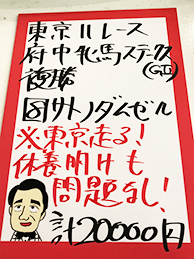 東京11レース
府中牝馬ステークス
(GⅡ)
複勝
⑧サトノダムゼル
※東京走る!
休養明けも
問題なし!
計20000円